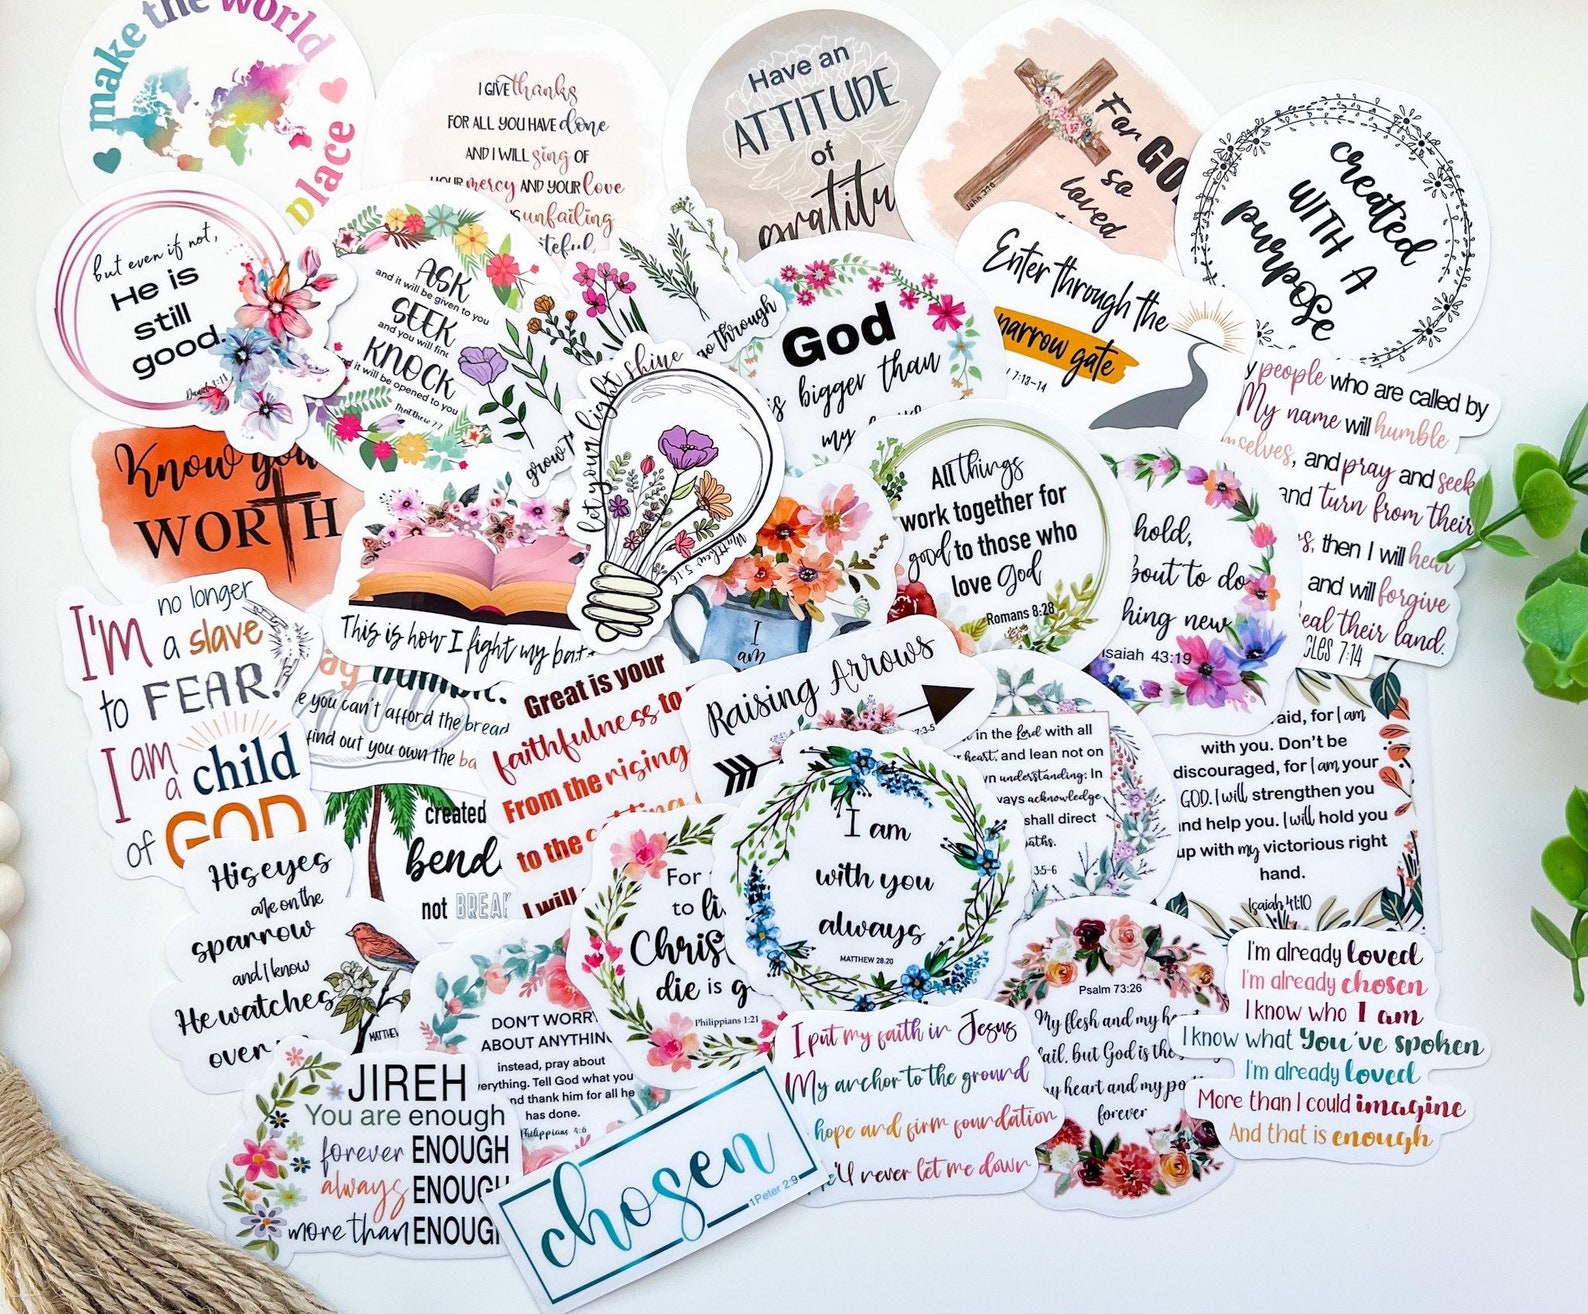 make the world
place
I GIVE thanks
FOR ALL YOU HAVE done
AND I WILL sing OF
YOUR mercy AND YOUR love
unfailing
Have an
ATTITUDE
of
For GOD
so
loved
John 3:16
created
WITH A
purpose
but even if not,
He is
still
good.
Daniel 3:18
ASK
and it will be given to you
SEEK
and you will find
KNOCK
and it will be opened to you
Matthew 7:7
grow
go through
let your light shine
Matthew 5:16
God
is bigger than
my
Enter through the
narrow gate
7:13-14
people who are called by
My name will humble
and pray and seek
and turn from their
then I will hear
and will forgive
heal their land.
7:14
Know your
WORTH
This is how I fight my
I am
All things
work together for
good to those who
love God
Romans 8:28
hold,
about to do
hing new
Isaiah 43:19
I'M no longer
a slave
to FEAR.
I am
a child
of GOD
humble.
you can't afford the bread
find out you own the
Great is your
faithfulness to
From the rising
to the
I will
Raising Arrows
127:3-5
in the Lord with all
heart, and lean not on
own understanding; In
always acknowledge
shall direct
paths.
3:5-6
for I am
with you. Don't be
discouraged, for I am your
GOD. I will strengthen you
and help you. I will hold you
up with my victorious right
hand.
Isaiah 41:10
created
bend
not BREAK
His eyes
are on the
sparrow
and I know
He watches
over
MATTHEW
For
to live
Christ
die is
Philippians 1:21
I am
with you
always
MATTHEW 28:20
DON'T WORRY
ABOUT ANYTHING
instead, pray about
everything. Tell God what you
and thank him for all he
has done.
Philippians 4:6
I put my faith in Jesus
My anchor to the ground
hope and firm foundation
He'll never let me down
Psalm 73:26
My flesh and my heart
fail, but God is the
my heart and my
forever
I'm already loved
I'm already chosen
I know who I am
I know what You've spoken
I'm already loved
More than I could imagine
And that is enough
JIREH
You are enough
forever ENOUGH
always ENOUGH
more than ENOUGH
chosen
1 Peter 2:9